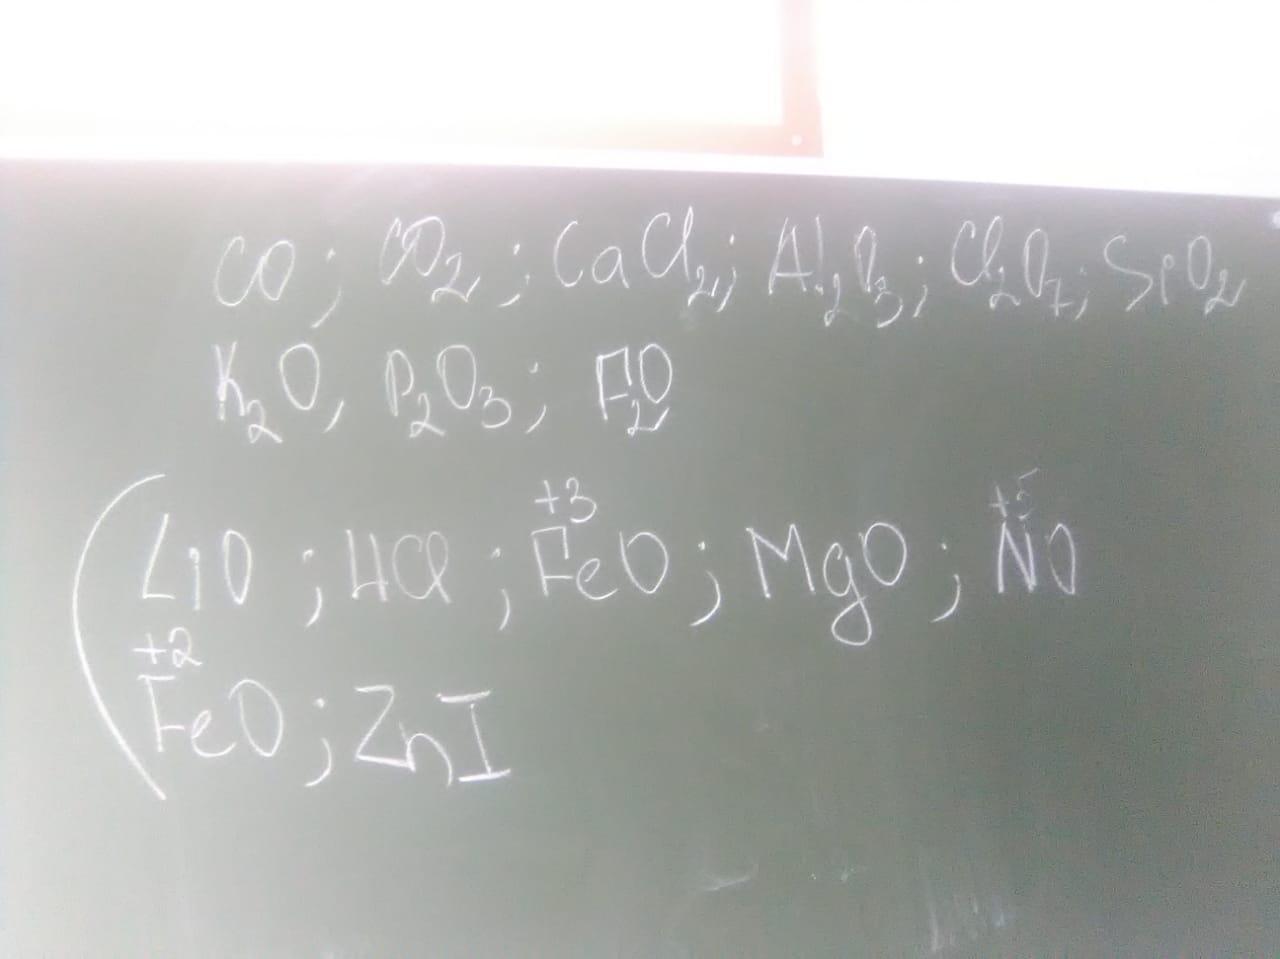 CO; CO₂; CaCl₂; Al₂O₃; Cl₂O₇; SiO₂
K₂O, P₂O₃; F₂O
+3 +5
LiO; HCl; FeO; MgO; NO
+2
FeO; ZnI